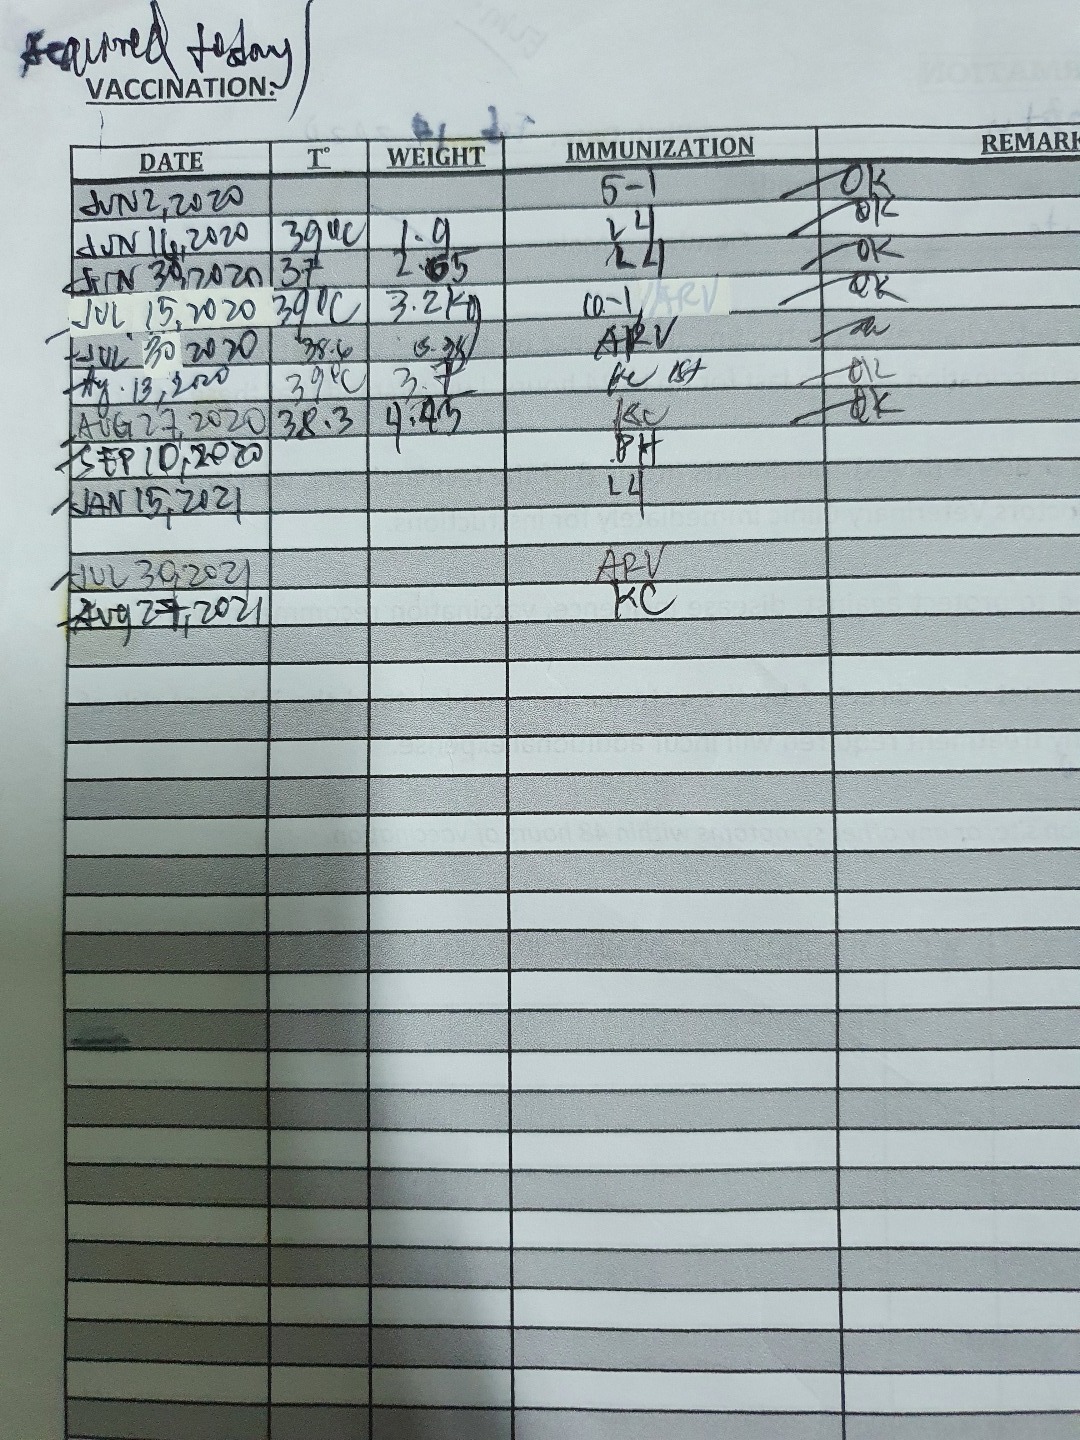 required today
VACCINATION:
DATE T° WEIGHT IMMUNIZATION REMARK
JUN 2, 2020 5-1 OK
JUN 16, 2020 39°C 1.9 L4 OK
JUN 30, 2020 37 2.65 L4 OK
JUL 15, 2020 39°C 3.2kg 10-1/ARV OK
JUL 30 2020 38.6 ARV
Ag. 13, 2020 39°C 3.7 KC 1st OK
AUG 27, 2020 38.3 4.45 KC OK
SEP 10, 2020 PH
JAN 15, 2021 L4
JUL 30, 2021 ARV
Aug 27, 2021 KC